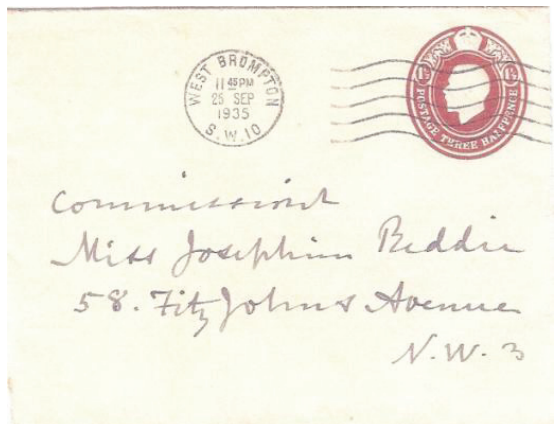 WEST BROMPTON
11 45 PM
25 SEP
1935
S.W.10
1½ 1½
POSTAGE THREE HALFPENCE
Commissioned
Miss Josephine Beddie
58. Fitz Johns Avenue
N.W. 3